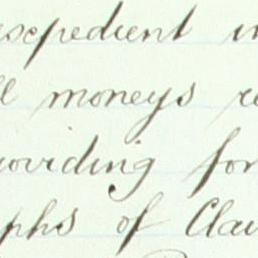 expedient in
ll moneys re
roviding for
phs of Clau